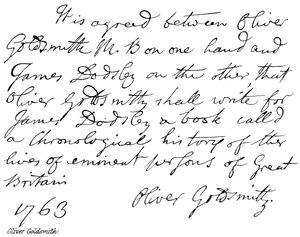 It is agreed between Oliver
Goldsmith M. B on one hand and
James Dodsley on the other that
Oliver Goldsmith shall write for
James Dodsley a book called
a Chronological history of the
lives of eminent persons of Great
Britain
Oliver Goldsmith.
1763
Oliver Goldsmith.